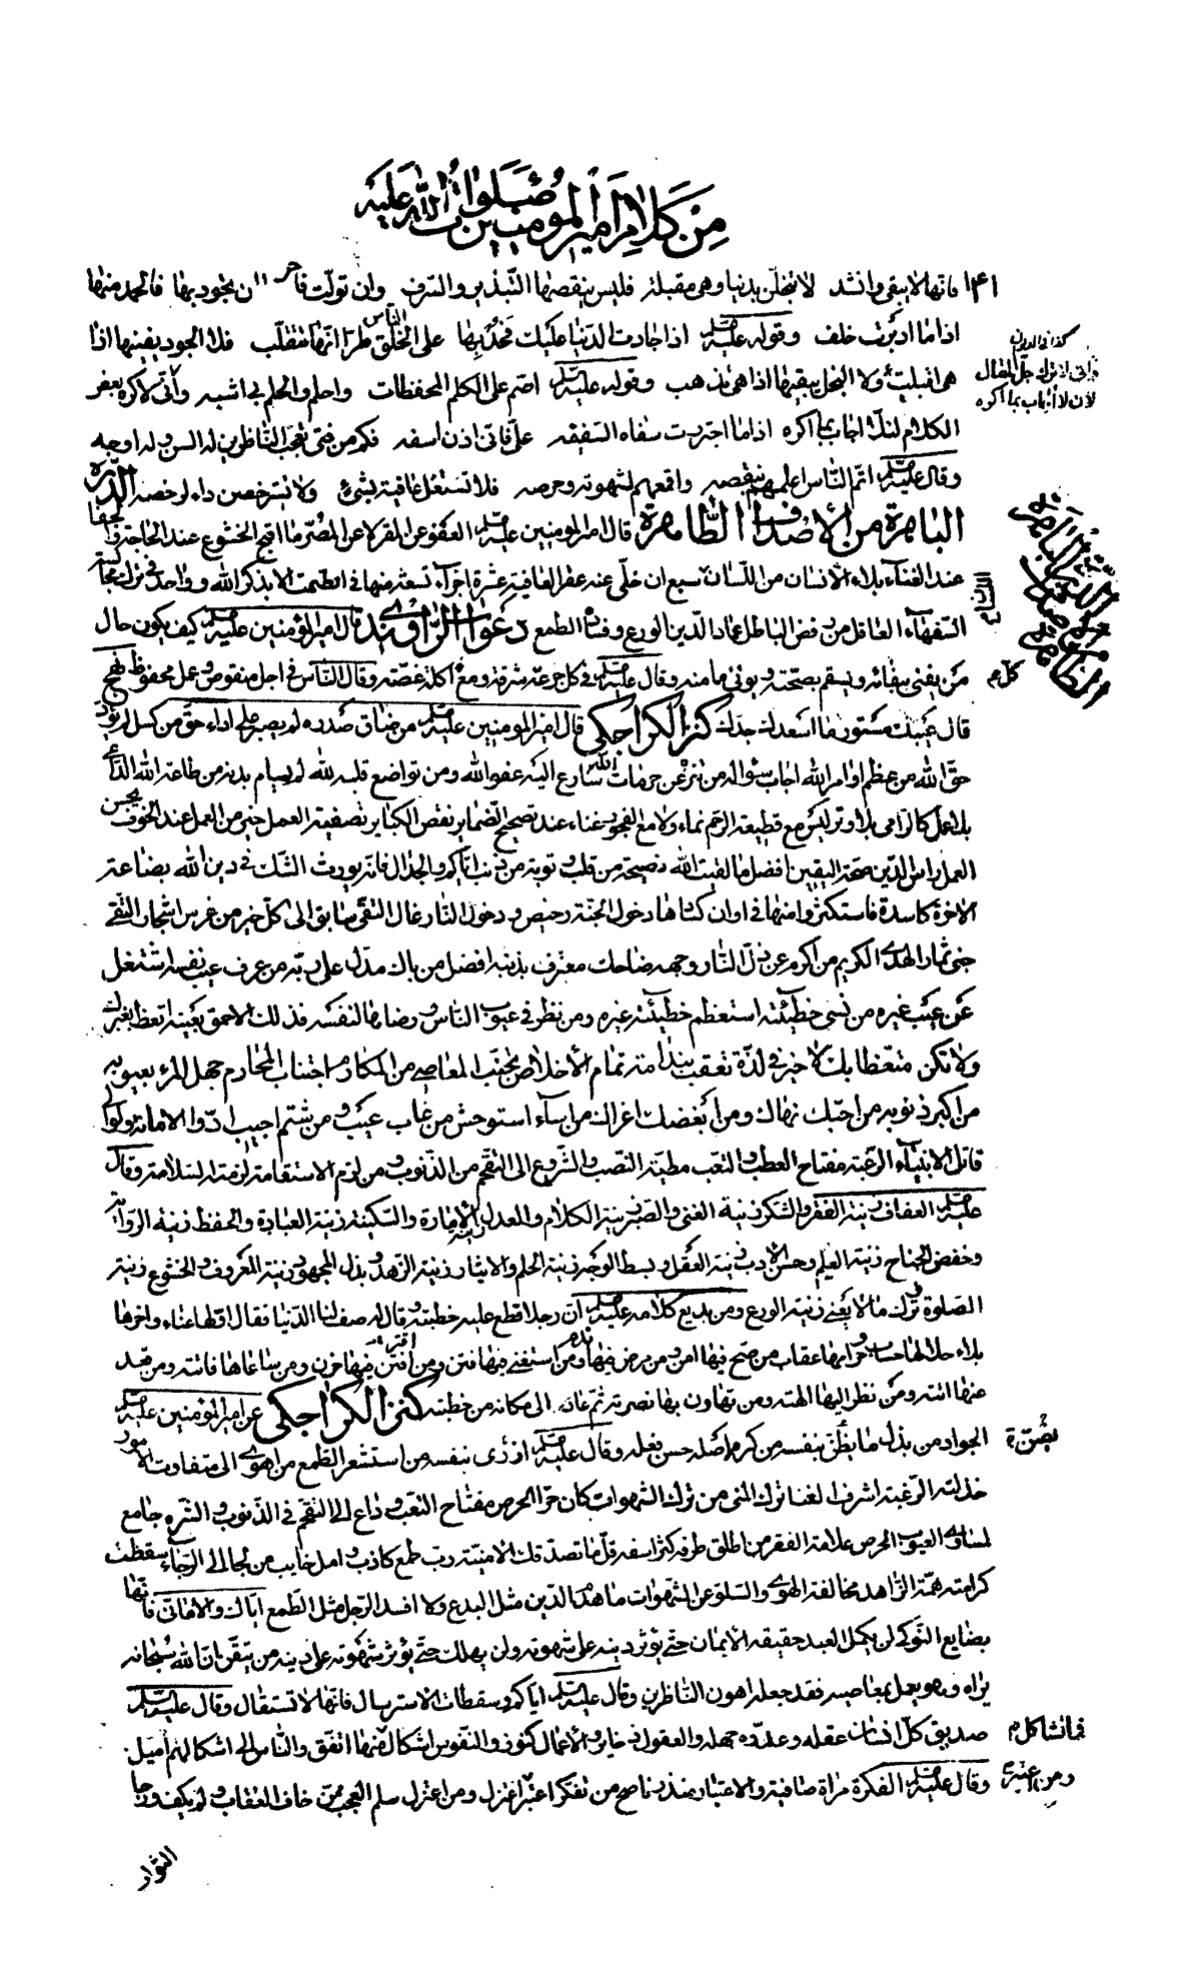 من كلام أمير المؤمنين صلوات الله عليه
١٤١ فانها لا يبقى وانشد لا تبخلن بدنيا وهى مقبلة فليس ينقصها التبذير والسرف وان تولت فاحر ان يجود بها فالحمد منها
اذا ما ادبرت خلف وقوله عليه السلام اذا جادت الدنيا عليك فجد بها على الخلق طرا انها تتقلب فلا الجود يفنيها اذا
هى اقبلت ولا البخل يبقيها اذا هى تذهب وقوله عليه السلام اصم عن الكلم المحفظات واحلم والحلم بى اشبه وانى لاكره بعض
الكلام لئلا اجاب بما اكره اذا ما اجتررت سفاه السفيه على فانى اذن اسفه فكم من فتى يعجب الناظرين له السن وله اوجه
وقال عليه السلام اتم الناس اعلمهم بنقصه واقمعهم لشهوته وحرصه فلا تستغل عافية بشئ ولا تسترخصن داء لرخصه الدرة
الباهرة من الأصداف الطاهرة قال امير المؤمنين عليه السلام العفو عن المقر لا عن المصر ما اقبح الخشوع عند الحاجة والجفا
عند الغناء بلاء الانسان من اللسان العافية عشرة اجزاء تسعة منها فى الصمت الا بذكر الله وواحد فى ترك مجالسة
السفهاء العاقل من رفض الباطل عماد الدين الورع وفساده الطمع دعوات الراوندى قال امير المؤمنين عليه السلام كيف يكون حال
من يفنى ببقائه ويسقم بصحته ويؤتى ما منه وقال عليه السلام فى كل جرعة شرقة ومع كل اكلة غصة وقال الناس فى اجل منقوص وعمل محفوظ نهج
قال عيبك مستور ما اسعدك جدك كنز الكراجكى قال امير المؤمنين عليه السلام من ضاق صدره لم يصبر على اداء حق من كسل لم يؤد
حق الله من عظم اوامر الله اجاب سؤاله من تنزه عن حرمات الله سارع اليه عفو الله ومن تواضع قلبه لله لم يسأم بدنه من طاعة الله الداعى
بلا عمل كالرامى بلا وتر ليس مع قطيعة الرحم نماء ولا مع الفجور غناء عند تصحيح الضماير تغفر الكباير تصفية العمل خير من العمل عند الخوف يحسن
العمل راس الدين صحة اليقين افضل ما لقيت الله به نصيحة من قلب وتوبة من ذنب اياكم والجدال فانه يورث الشك فى دين الله بضاعة
الاخرة كاسدة فاستكثروا منها فى اوان كسادها دخول الجنة رخيص ودخول النار غال التقى سابق الى كل خير من غرس اشجار التقى
جنى ثمار الهدى الكريم من اكرم عن ذل النار وجهه ضاحك معترف بذنبه افضل من باك مدل على ربه من عرف عيب نفسه اشتغل
عن عيب غيره من نسى خطيئته استعظم خطيئة غيره ومن نظر فى عيوب الناس ورضاها لنفسه فذلك الاحمق بعينه اتعظ بغيرك
ولا تكن متعظا بك لا خير فى لذة تعقب ندامة تمام الاخلاص تجنب المعاصى من المكارم اجتناب المحارم جهل المرء بعيوبه
من اكبر ذنوبه من احبك نهاك ومن ابغضك اغراك من اساء استوحش من عاب عيب ومن شتم اجيب ادوا الامانة ولو الى
قاتل الانبياء الرغبة مفتاح العطب والتعب مطية النصب والشر داع الى التقحم من الذنوب ومن لزم الاستقامة لزمته السلامة وقال
عليه السلام العفاف زينة الفقر والشكر زينة الغنى والصبر زينة الكلام والعدل زينة الامارة والسكينة زينة العبادة والحفظ زينة الرواية
وخفض الجناح زينة العلم وحسن الادب زينة العقل وبسط الوجه زينة الحلم والايثار زينة الزهد وبذل المجهود زينة المعروف والخشوع زينة
الصلوة وترك ما لا يعنى زينة الورع ومن بديع كلامه عليه السلام ان رجلا قطع عليه خطبته وقال له صف لنا الدنيا فقال اولها عناء واخرها
بلاء حلالها حساب وحرامها عقاب من صح فيها امن ومن مرض فيها ندم ومن استغنى فيها فتن ومن افتقر فيها حزن ومن ساعاها فاتته ومن قعد
عنها اتته ومن نظر اليها الهته ومن تهاون بها نصرته ثم عاد الى مكانه من خطبته كنز الكراجكى عن امير المؤمنين عليه السلام
الجواد من بذل ما يضن بنفسه من كرم اصله حسن فعله وقال عليه السلام ازرى بنفسه من استشعر الطمع من اهوى الى متفاوت الامور
خذلته الرغبة اشرف الغنا ترك المنى من ترك الشهوات كان حرا الحرص مفتاح التعب وداع الى التقحم فى الذنوب والشره جامع
لمساوى العيوب الحرص علامة الفقر من اطلق طرفه كثر اسفه قل ما تصدقك الامنية رب طمع كاذب وامل خايب من لجا الى الرجاء سقطت
كرامته همة الزاهد مخالفة الهوى والسلو عن الشهوات ما هدم الدين مثل البدع ولا افسد الرجل مثل الطمع اياك والامانى فانها
بضايع النوكى لن يكمل العبد حقيقة الايمان حتى يؤثر دينه على شهوته ولن يهلك حتى يؤثر شهوته على دينه من تيقن ان الله سبحانه
يراه وهو يعمل بمعاصيه فقد جعله اهون الناظرين وقال عليه السلام اياكم وسقطات الاسترسال فانها لا تستقال وقال عليه السلام
صديق كل انسان عقله وعدوه جهله والعقول ذخاير والاعمال كنوز والنفوس اشكال فما تشاكل منها اتفق والناس الى اشكالهم اميل
وقال عليه السلام الفكرة مراة صافية والاعتبار منذر ناصح من تفكر اعتبر ومن اعتبر اعتزل ومن اعتزل سلم العجب ممن خاف العقاب فلم يكف ورجا
الثواب
كذا فى الديوان
فانى لا ترك جل المقال
لأن لا اجاب بما اكره
الدرة الباهرة
من الاصداف
الطاهرة
كل م
يضن
فما تشاكل م
ومن اعتبر